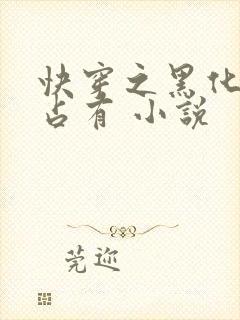 快穿之黑化
占有 小說
莞迩